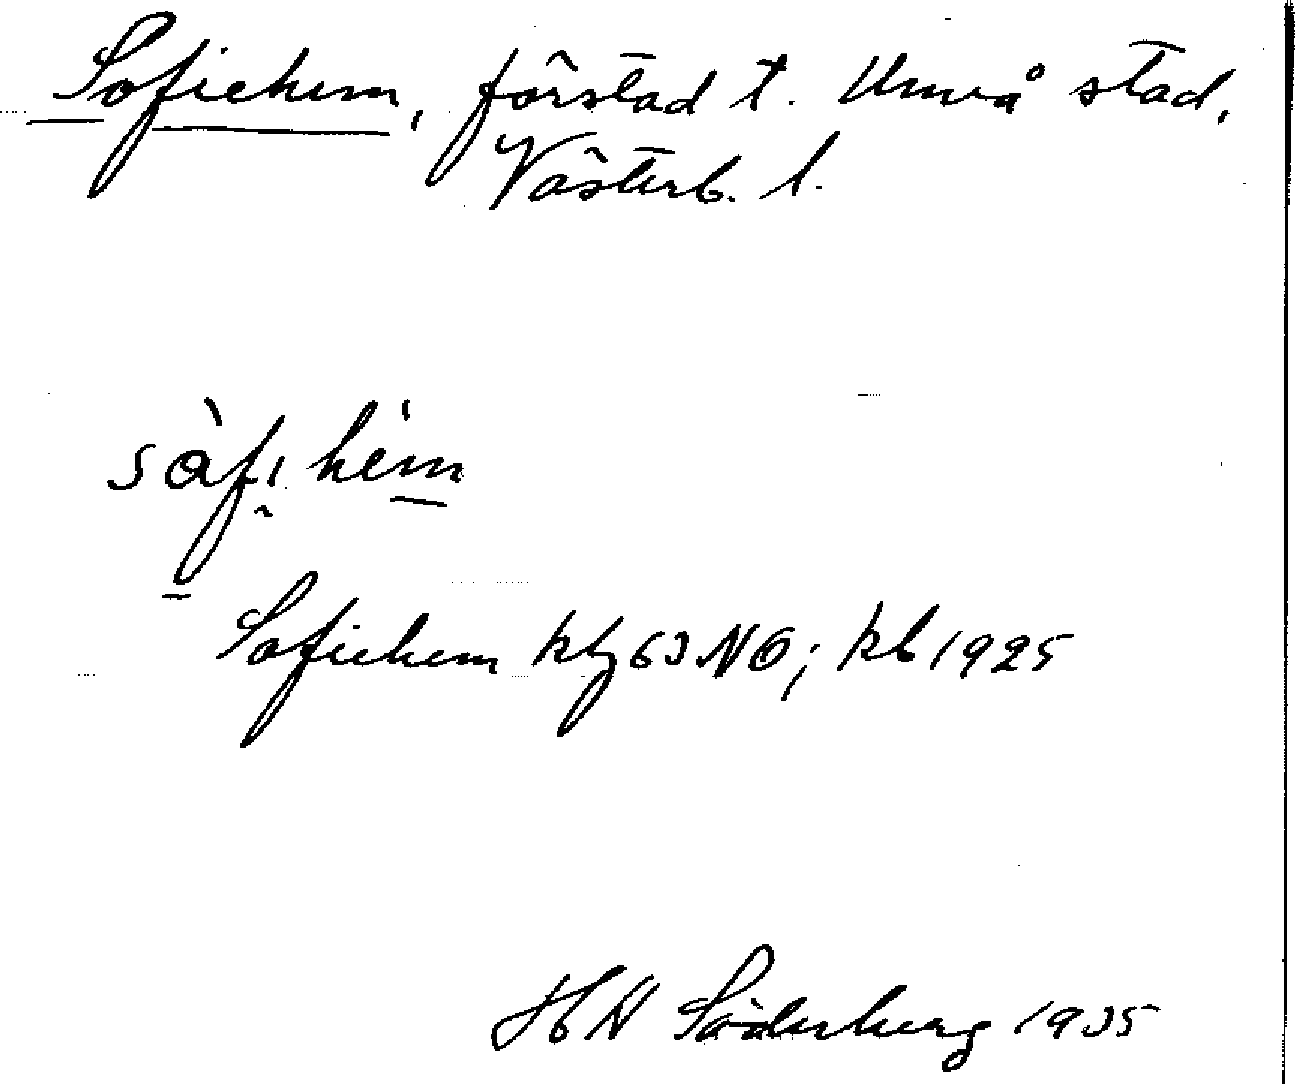 Sofiehem, förstad t. Umeå stad,
Västerb. l.
sàfi hèm
Sofiehem kbg 63 NO; kb 1925
HN Söderberg 1935